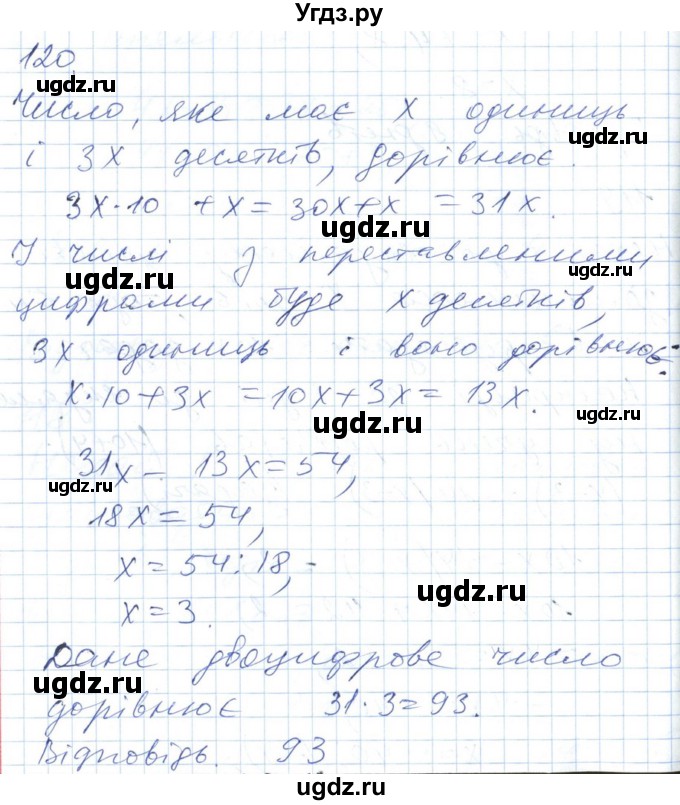 Угдз.ру
120
Число, яке має x одиниць
і 3x десятків, дорівнює.
3x·10 + x = 30x+x = 31x.
У числі з переставленими
цифрами буде x десятків,
3x одиниць і воно дорівнює:
x·10+3x = 10x+3x = 13x.
31x - 13x = 54,
18x = 54,
x = 54:18,
x = 3.
Дане двоцифрове число
дорівнює 31·3=93.
Відповідь. 93
ugdz.ru
ugdz.ru
ugdz.ru
ugdz.ru
ugdz.ru
ugdz.ru
ugdz.ru
ugdz.ru
ugdz.ru
ugdz.ru
ugdz.ru
ugdz.ru
ugdz.ru